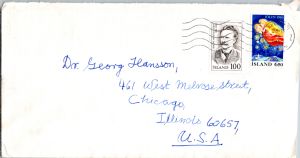 JÓLIN 1982
ÍSLAND 100
ÍSLAND 600
Dr. Georg Hansson,
461 West Melrose street,
Chicago,
Illinois 60657,
U.S.A.